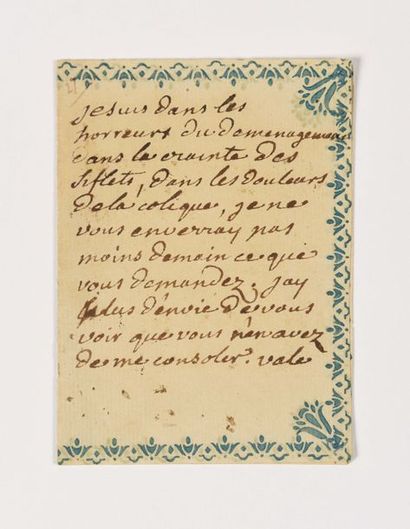 jesuis dans les
horreurs du demenagement
dans la crainte des
siflets, dans les douleurs
dela colique, je ne
vous enverray pas
moins demain ce que
vous demandez. jay
plus d'envie de vous
voir que vous n'en avez
de me consoler. vale